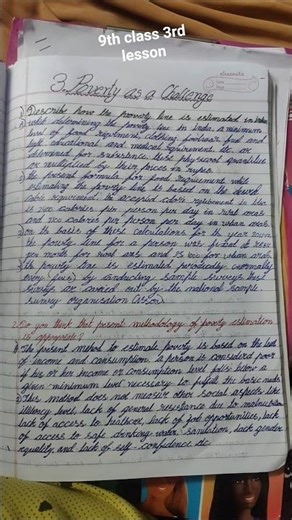 9th class 3rd
lesson
3. Poverty as a Challenge
1) Describe how the poverty line is estimated in India
while determining the poverty line in India, a minimum
level of food requirement, clothing, footwear, fuel and
light educational and medical requirement etc are
determined for subsistence. these physical quantities
are multiplied by their prices in rupees
the present formula for food requirement while
estimating the poverty line is based on the desired
calorie requirement. the accepted calorie requirement in India
is calories per person per day in rural areas
and calories per person per day in urban areas
on the basis of these calculations for the year
the poverty line for a person was fixed at
per month for rural areas and for urban areas
the poverty line is estimated periodically (normally
every by conducting sample surveys these
surveys are carried out by the national sample
survey organisation
2. Do you think that present methodology of poverty estimation
is appropriate?
The present method to estimate poverty is based on the level
of income and consumption. a person is considered poor
if his or her income or consumption level falls below a
given minimum level necessary to fulfill the basic needs
This method does not measure other social aspects like
illiteracy level, lack of general resistance due to malnutrition
lack of access to healthcare, lack of job opportunities, lack
of access to safe drinking water sanitation, lack gender
equality, and lack of self-confidence etc